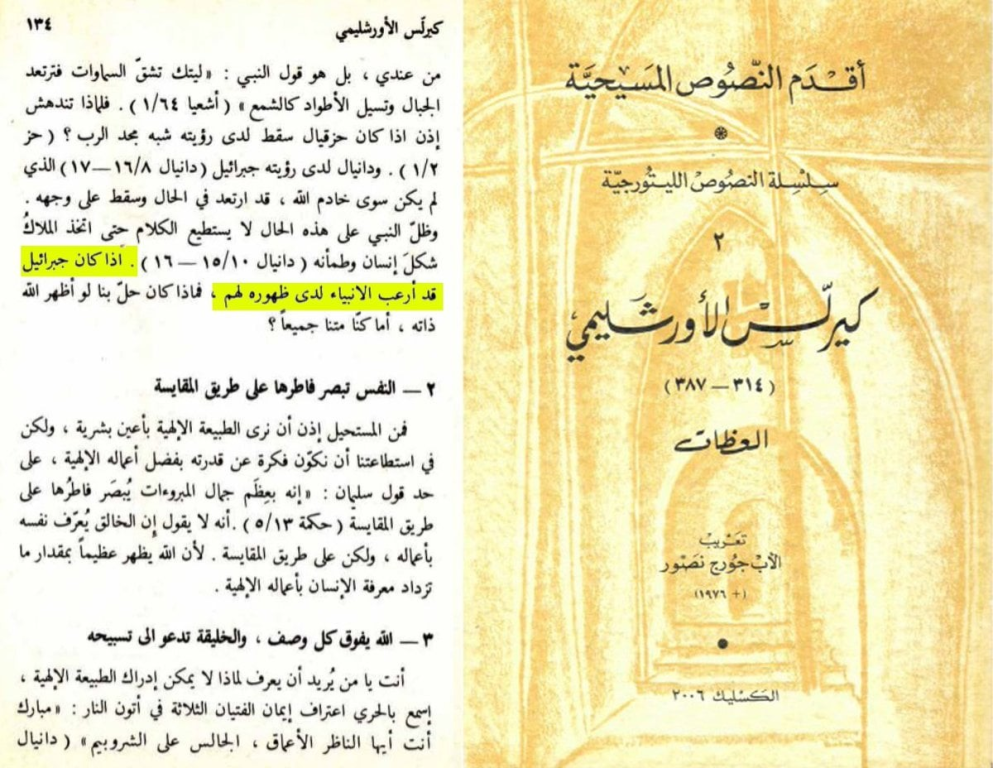 كيرلّس الأورشليمي ١٣٤
من عندي ، بل هو قول النبي : «ليتك تشقّ السماوات فترتعد
الجبال وتسيل الأطواد كالشمع» ( أشعيا ١/٦٤ ) . فلماذا تندهش
إذن اذا كان حزقيال سقط لدى رؤيته شبه مجد الرب ؟ ( حز
١/٢ ) . ودانيال لدى رؤيته جبرائيل (دانيال ١٦/٨—١٧) الذي
لم يكن سوى خادم الله ، قد ارتعد في الحال وسقط على وجهه .
وظلّ النبي على هذه الحال لا يستطيع الكلام حتى اتخذ الملاكُ
شكلَ إنسان وطمأنه ( دانيال ١٥/١٠ — ١٦ ) . اذا كان جبرائيل
قد أرعب الانبياء لدى ظهوره لهم ، فماذا كان حلّ بنا لو أظهر الله
ذاته ، أما كنّا متنا جميعاً ؟
٢ — النفس تبصر فاطرها على طريق المقايسة
فمن المستحيل إذن أن نرى الطبيعة الإلهية بأعين بشرية ، ولكن
في استطاعتنا أن نكوّن فكرة عن قدرته بفضل أعماله الإلهية ، على
حد قول سليمان : «إنه بعِظَم جمال المبروءات يُبصَر فاطرُها على
طريق المقايسة ( حكمة ٥/١٣ ) .أنه لا يقول إن الخالق يُعرّف نفسه
بأعماله ، ولكن على طريق المقايسة . لأن الله يظهر عظيماً بمقدار ما
تزداد معرفة الإنسان بأعماله الإلهية .
٣ — الله يفوق كل وصف ، والخليقة تدعو الى تسبيحه
أنت يا من يُريد أن يعرف لماذا لا يمكن إدراك الطبيعة الإلهية ،
إسمع بالحري اعتراف إيمان الفتيان الثلاثة في أتون النار : «مبارك
أنت أيها الناظر الأعماق ، الجالس على الشروبيم» ( دانيال
أقدم النّصُوص المسَيحيَّة
سلسلة النصُوص الليتورجيّة
٢
كيرلّس الأورشَليمي
( ٣١٤ — ٣٨٧ )
العظات
تعريب
الأب جورج نصّور
( + ١٩٧٦ )
الكسليك ٢٠٠٦